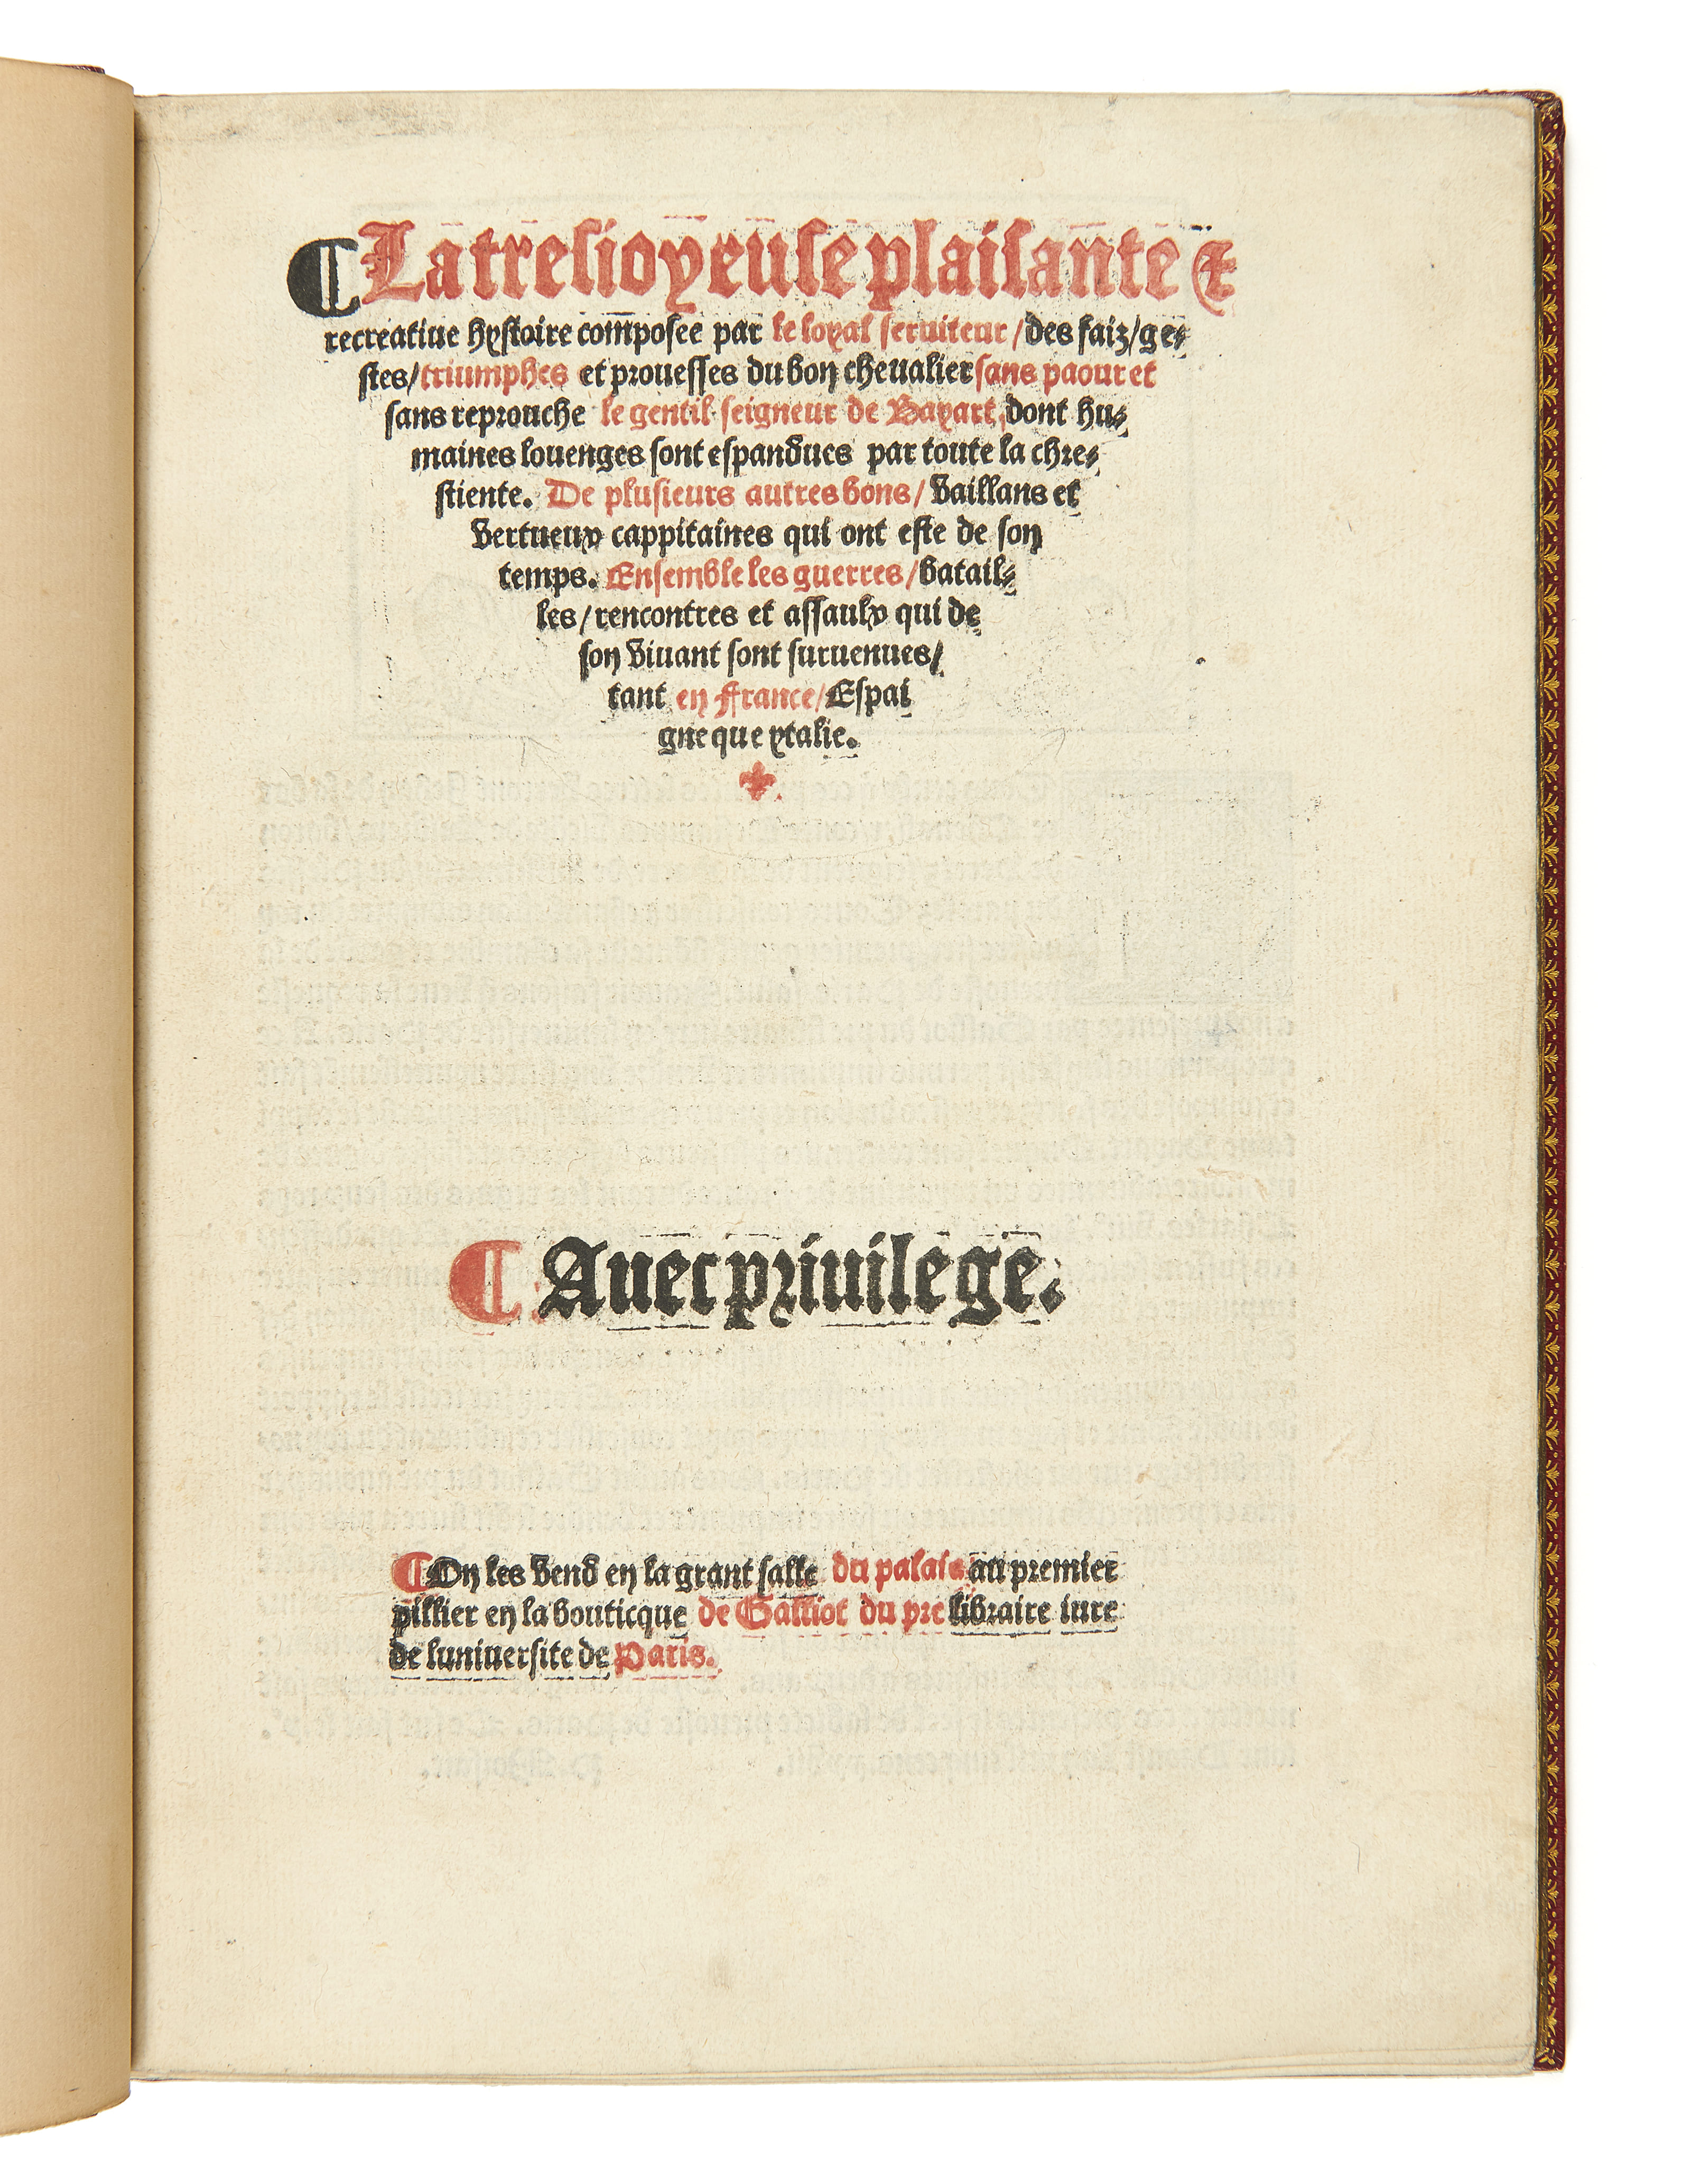 ¶ La tresioyeuse plaisante &
recreatiue hystoire composee par le loyal seruiteur / des faiz / ge⸗
stes / triumphes et prouesses du bon cheualier sans paour et
sans reprouche le gentil seigneur de Bayart, dont hu⸗
maines louenges sont espandues par toute la chre⸗
stiente. De plusieurs autres bons / vaillans et
vertueux cappitaines qui ont este de son
temps. Ensemble les guerres / batail⸗
les / rencontres et assaulx qui de
son viuant sont suruenues /
tant en France / Espai
gne que ytalie.
¶ Auec priuilege.
¶ On les vend en la grant salle du palais au premier
pillier en la bouticque de Galliot du pre libraire iure
de luniuersite de Paris.